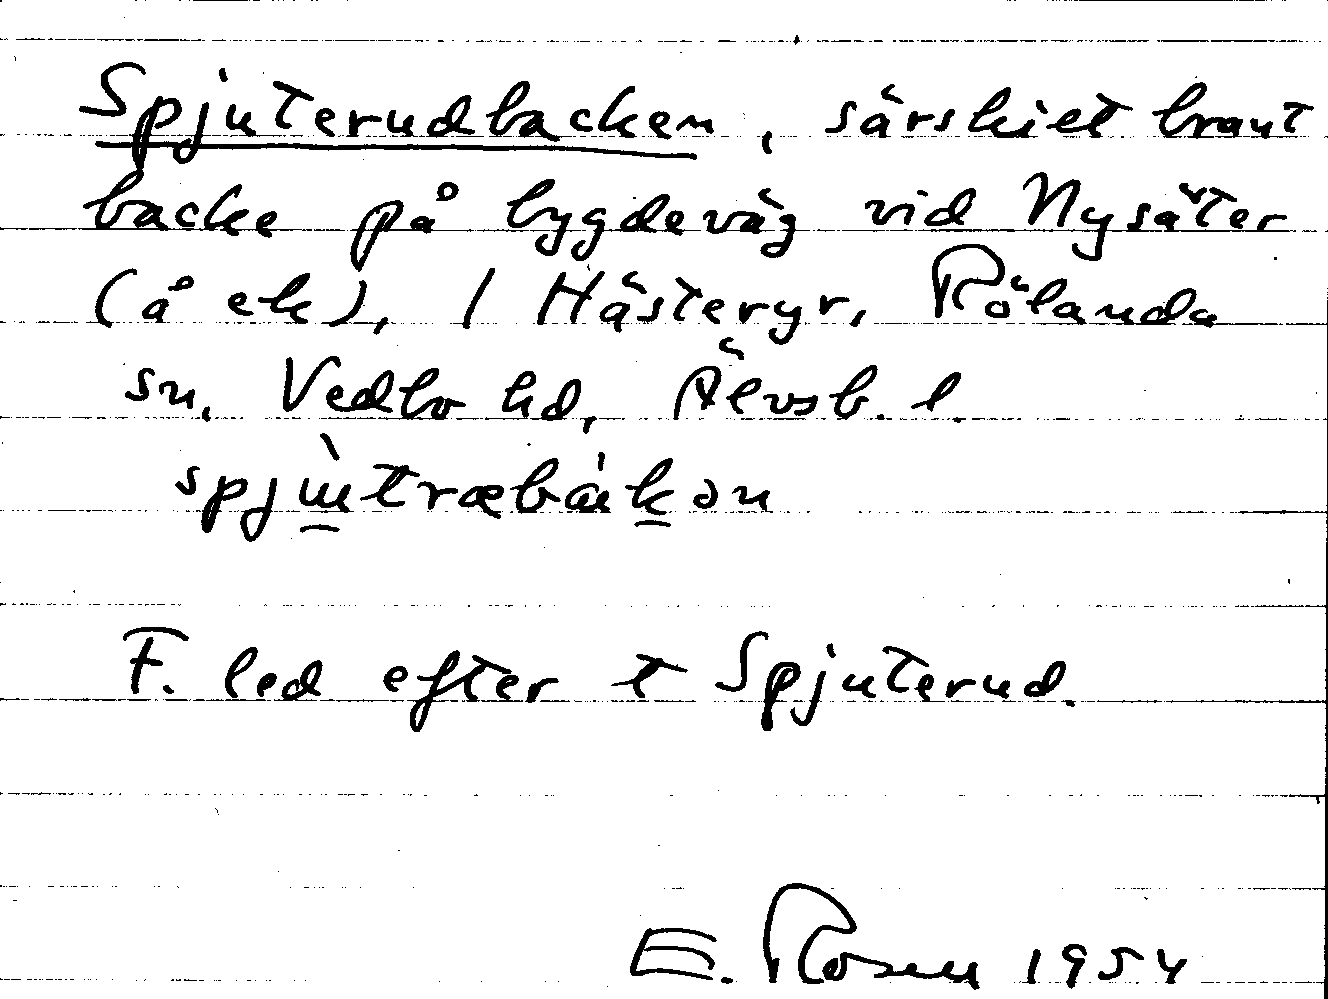 Spjuterudbacken, särskiet brant
backe på bygdeväg vid Nysäter
(å ek), 1 Hästeryr, Rölanda
sn, Vedbo hd, Älvsb. l.
spjùtræbák
F. led efter t Spjuterud.
E. Rosen 1954